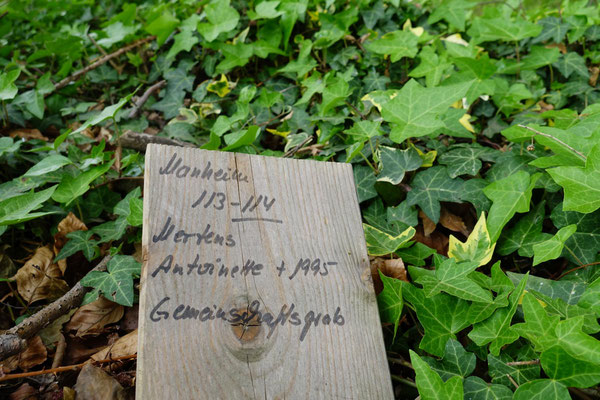 Manheim
113-114
Mertens
Antoinette + 1995
Gemeinschaftsgrab